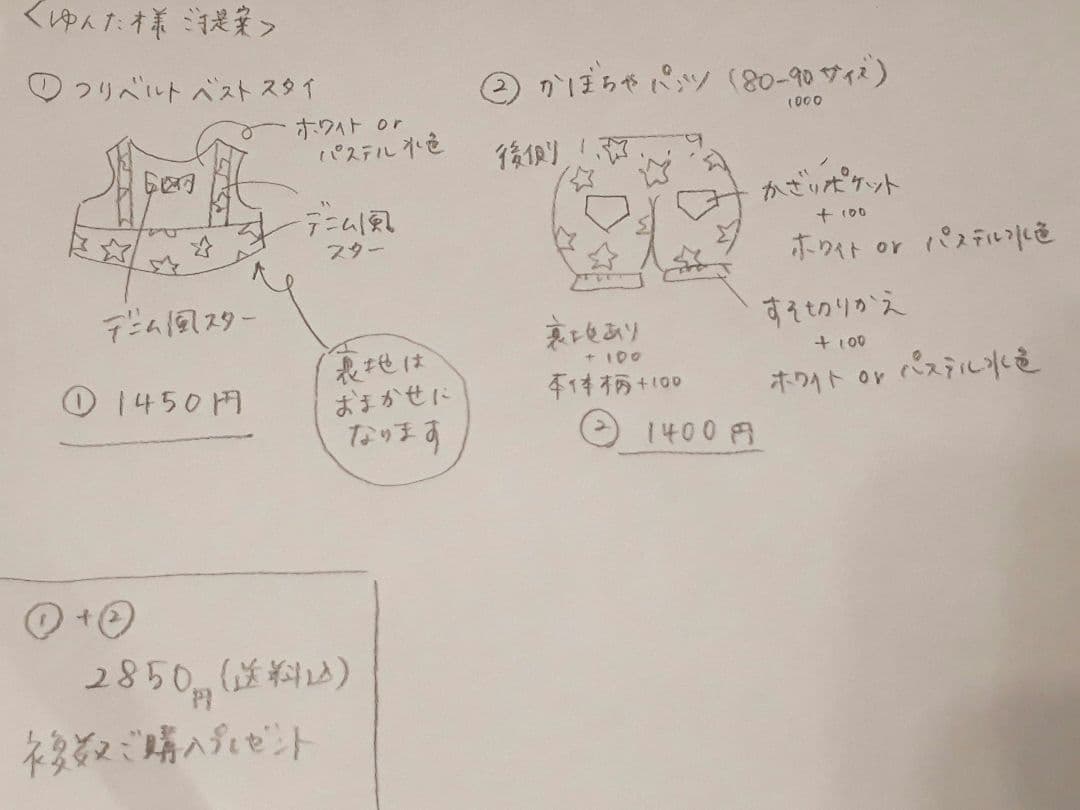 <ゆんた様 ご提案>
① つりベルト ベスト スタイ
ホワイト or
パステル水色
デニム風
スター
デニム風スター
裏地は
おまかせに
なります
① 1450円
② かぼちゃパンツ (80-90サイズ)
1000
後側
かざりポケット
+100
ホワイト or パステル水色
すそ切りかえ
+100
ホワイト or パステル水色
裏地あり
+100
本体柄+100
② 1400円
①+②
2850円(送料込)
複数ご購入プレゼント